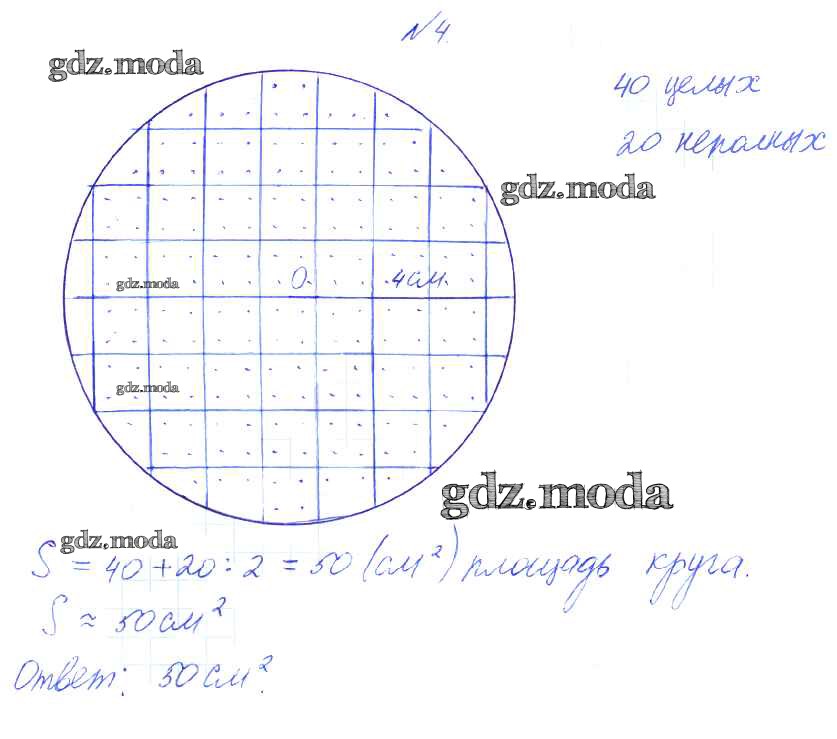 №4.
gdz.moda
40 целых
20 неполных
gdz.moda
gdz.moda
О
4см
gdz.moda
gdz.moda
gdz.moda
S = 40 + 20 : 2 = 50 (см²) площадь круга.
S ≈ 50 см²
Ответ: 50 см².